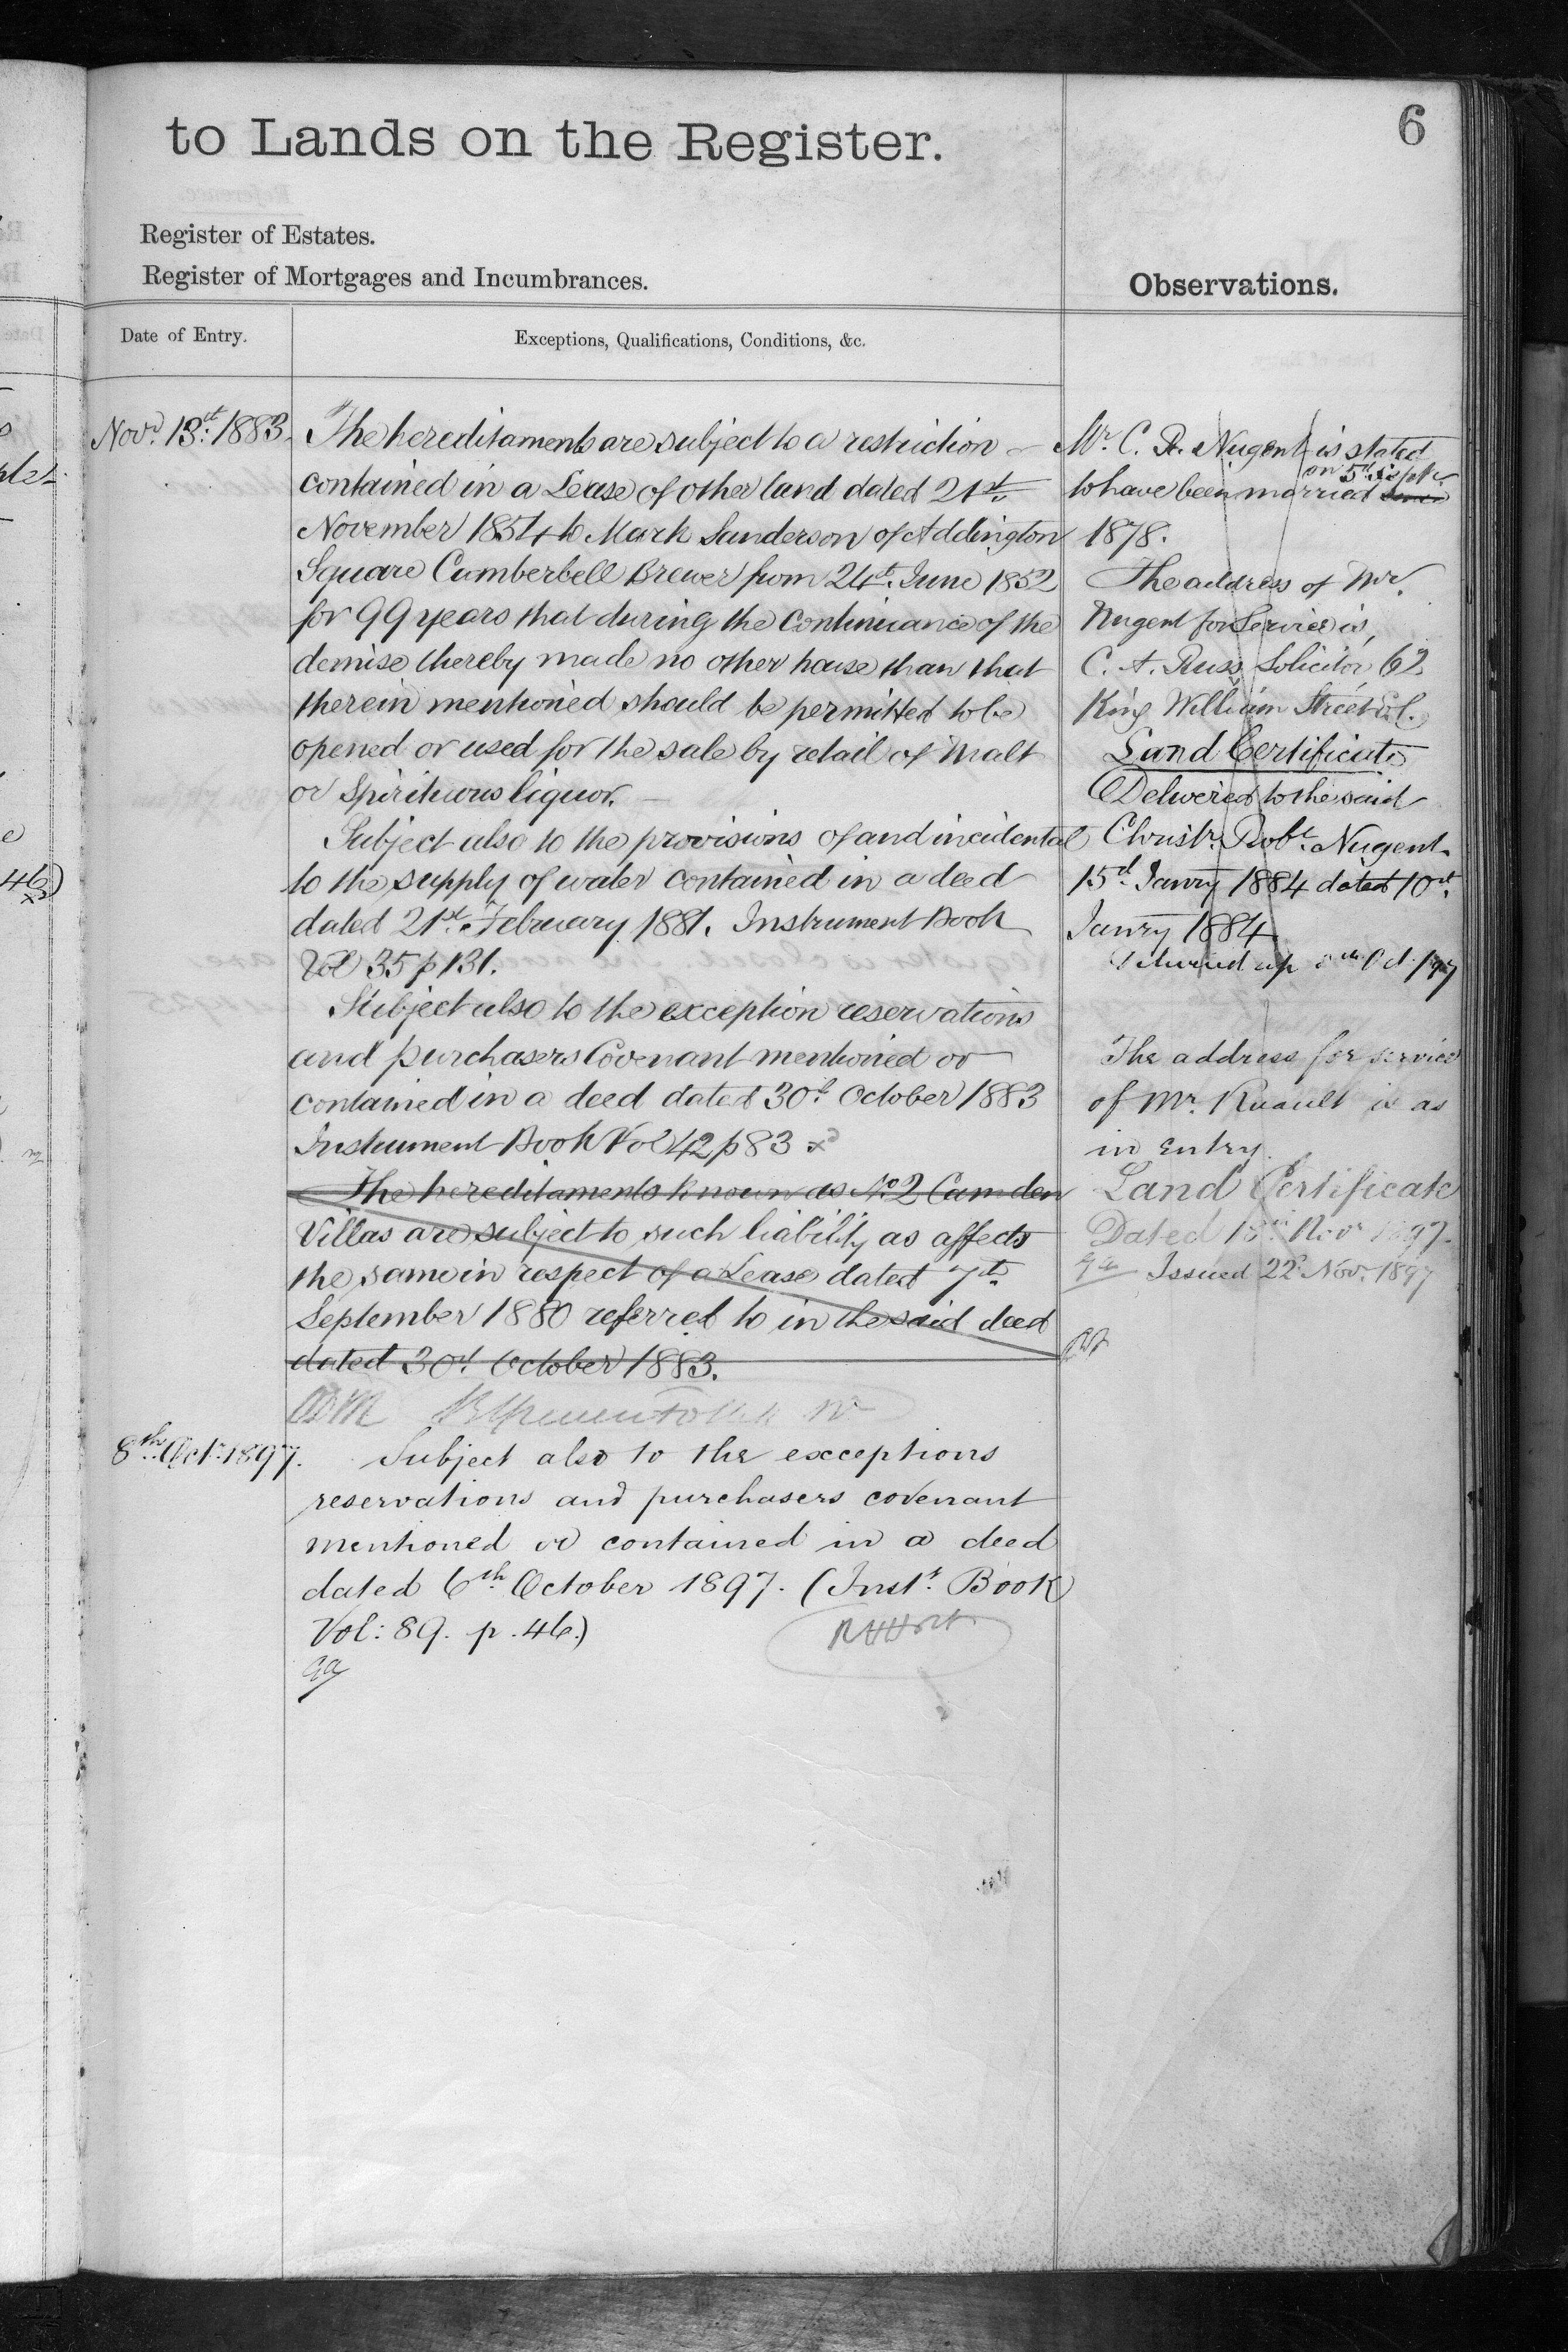 6
to Lands on the Register.
Register of Estates.
Register of Mortgages and Incumbrances.
Observations.
Date of Entry.
Exceptions, Qualifications, Conditions, &c.
Novr. 13th. 1883.
The hereditaments are subject to a restriction
contained in a Lease of other land dated 21st
November 1854 to Mark Sanderson of Addington
Square Camberwell Brewer from 24th. June 1852
for 99 years that during the Continuance of the
demise thereby made no other house than that
therein mentioned should be permitted to be
opened or used for the sale by retail of Malt
or Spirituous liquor.
Subject also to the provisions of and incidental
to the supply of water contained in a deed
dated 21st. February 1881. Instrument Book
Vol 35 p 131.
Subject also to the exception reservations
and purchasers Covenant mentioned or
contained in a deed dated 30th October 1883
Instrument Book Vol 42 p 83
The hereditaments known as No 2 Camden
Villas are subject to such liability as affects
the same in respect of a Lease dated 7th.
September 1880 referred to in the said deed
dated 30th October 1883.
8th. Octr. 1897.
Subject also to the exceptions
reservations and purchasers covenant
mentioned or contained in a deed
dated 6th October 1897. (Instt. Book
Vol: 89. p. 46.)
Mr. C. R. Nugent is stated
on 5th Septr.
to have been married
1878.
The address of Mr.
Nugent for Service is,
C. A. Russ Solicitor 62
King William Street E.C.
Land Certificate
Delivered to the said
Christr. Robt. Nugent
15th. Janry 1884 dated 10th.
Janry 1884
The address for service
of Mr. Ruault is as
in entry.
Land Certificate
Dated Novr 1897.
Issued 22d Nov. 1897
46)